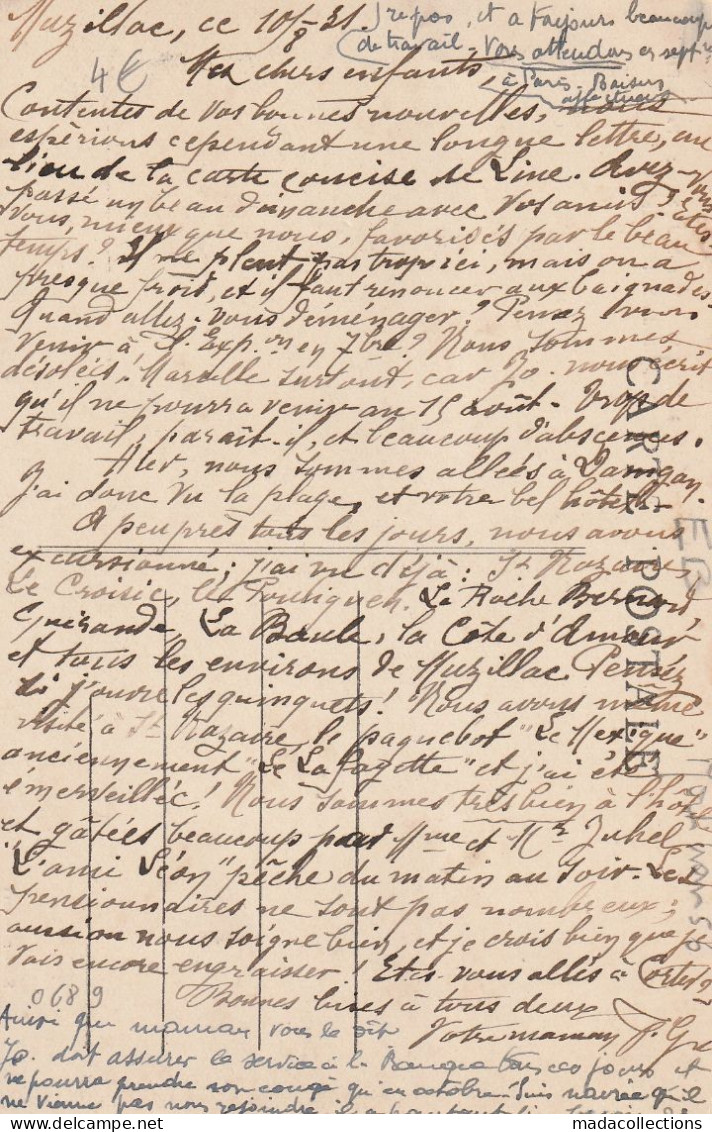 Muzillac, ce 10/8-31
Mes chers enfants,
Contentes de vos bonnes nouvelles, nous
espérions cependant une longue lettre, au
lieu de la carte concise de Line. Avez-vous
passé un beau dimanche avec vos amis? Etes
vous, mieux que nous, favorisés par le beau
temps? Il ne pleut pas trop ici, mais on a
presque froid, et il faut renoncer aux baignades.
Quand allez-vous déménager? Pensez vous
venir à l'Exp.on en 7bre? Nous sommes
désolées! Marcelle surtout, car Jo. nous écrit
qu'il ne pourra venir au 15 août. Trop de
travail, paraît-il, et beaucoup d'abscences.
Hier, nous sommes allées à Damgan.
J'ai donc vu la plage, et votre bel hôtel.
A peu près tous les jours, nous avons
excursionné; j'ai vu déjà: St Nazaire,
Le Croisic, le Pouliguen. La Roche Bernard,
Guérande, La Baule, la Côte d'Amour
et tous les environs de Muzillac Pensez
si j'ouvre les quinquets! Nous avons même
visité à St Nazaire, le paquebot "Le Mexique"
anciennement "Le La Fayette" et j'ai été
émerveillée! Nous sommes très bien à l'hôtel
et gâtées beaucoup par Mme et Mr Juhel
"L'ami Léon" pêche du matin au soir. Les
pensionnaires ne sont pas nombreux;
aussi on nous soigne bien, et je crois bien que je
vais encore engraisser! Etes-vous allés à
Bonnes bises à tous deux
Votre maman
Ainsi que maman vous le dit
Jo. doit assurer le service à la Banque tous ces jours et
ne pourra prendre son congé qu'en octobre. Suis navrée qu'il
ne vienne pas nous rejoindre, il a
repos, et a toujours beaucoup
de travail. Vous attendons en sept.
à Paris. Baisers
affectueux
4€
0689
CARTE POSTALE